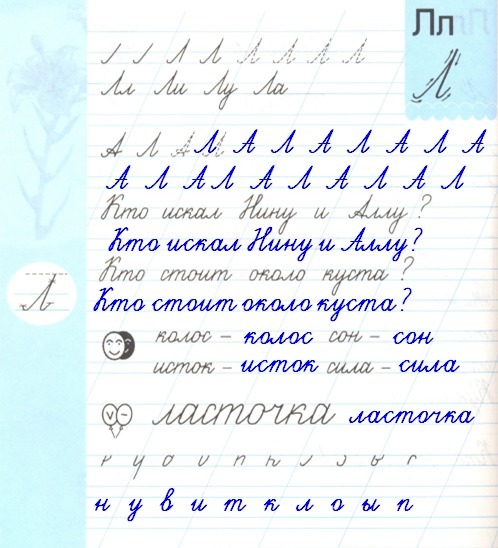 Лл
Л
Л Л Л Л Л Л
Лл Ли Лу Ла
А Л А Л Л А Л А Л А Л А
А Л А Л А Л А Л А Л
Кто искал Нину и Аллу?
Кто искал Нину и Аллу?
Кто стоит около куста?
Л
Кто стоит около куста?
колос – колос сон – сон
исток – исток сила – сила
ласточка ласточка
н у в и т к л о ы п